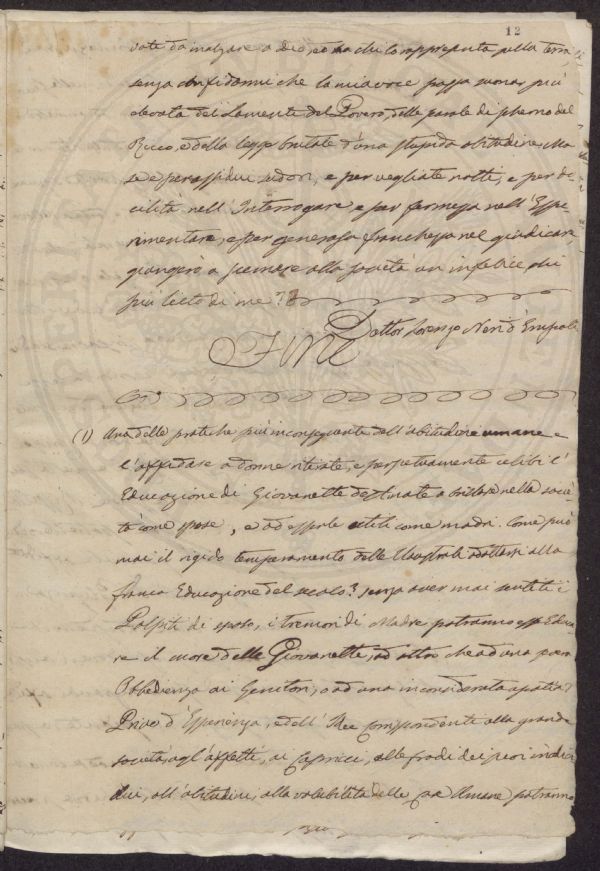 12
vate da inalzare a Dio, ed ma che lo rappresenta sulla terra
senza confidarmi che la mia voce possa suonar più
elevata del Lamento del Povero, delle parole di scherno del
Ricco, e della legge brutale d'una stupida abitudine. Ma
se e per assidui sudori, e per vegliate notti, e per do-
cilità nell'Interrogare, e per fermezza nell'Espe-
rimentare, e per generosa franchezza nel giudicare,
giungerò a scemare alla società un infelice, chi
più lieto di me?
Dottor Lorenzo Neri d'Empoli
FINE
(1) Una delle pratiche più inconseguente dell'abitudine umane e
l'affidare a donne ritirate, e perpetuamente celibi l'
Educazione di Giovanette destinate a brillare nella socie-
tà come spose, e ad esserle utili come madri. Come può
mai il rigido temperamento delle Claustrali adattarsi alla
franca Educazione del secolo? senza aver mai sentiti i
Palpiti di sposo, i tremori di Madre potranno esse Educa-
re il cuore delle Giovanette, ad altro che ad una
Obbedienza ai Genitori, o ad una inconsiderata apatia?
Prive d'Esperienza, e dell'Idee Corrispondenti alla grande
società, agl'affetti, ai Capricci, alle frodi dei suoi indivi-
dui, all'abitudini, alla volubilità delle cose Umane potranno